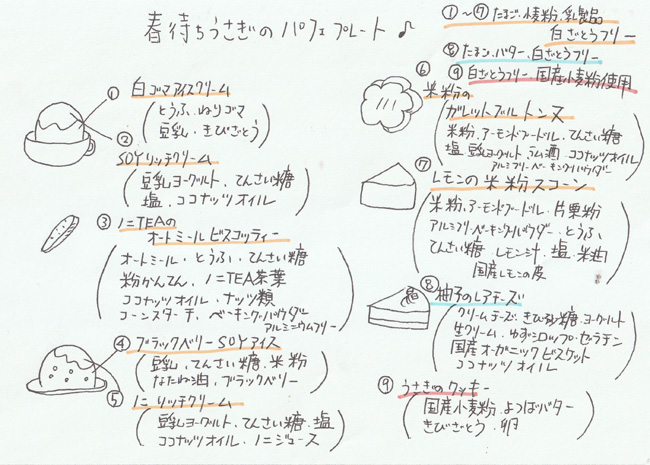 春待ちうさぎのパフェプレート♪
① 白ゴマアイスクリーム
(とうふ・ねりゴマ
豆乳・きびざとう)
② SOYリッチクリーム
(豆乳ヨーグルト、てんさい糖
塩、ココナッツオイル)
③ ノニTEAの
オートミールビスコッティー
(オートミール・とうふ・てんさい糖
粉かんてん、ノニTEA茶葉
ココナッツオイル、ナッツ類
コーンスターチ、ベーキングパウダー
アルミニウムフリー)
④ ブラックベリーSOYアイス
(豆乳、てんさい糖、米粉
なたね油、ブラックベリー)
⑤ ノニリッチクリーム
(豆乳ヨーグルト、てんさい糖、塩
ココナッツオイル・ノニジュース)
①〜⑦ たまご・小麦粉・乳製品
白ざとうフリー
⑧ たまご、バター、白ざとうフリー
⑨ 白ざとうフリー 国産小麦粉使用
⑥ 米粉の
ガレットブルトンヌ
(米粉、アーモンドプードル、てんさい糖
塩 豆乳ヨーグルト、ラム酒 ココナッツオイル
アルミフリーベーキングパウダー)
⑦ レモンの米粉スコーン
(米粉、アーモンドプードル、片栗粉
アルミフリーベーキングパウダー・とうふ
てんさい糖 レモン汁、塩、米油
国産レモンの皮)
⑧ 柚子のレアチーズ
(クリームチーズ、きび砂糖・ヨーグルト
生クリーム、ゆずシロップ・ゼラチン
国産オーガニックビスケット
ココナッツオイル)
⑨ うさぎのクッキー
(国産小麦粉、よつばバター
きびざとう、卵)